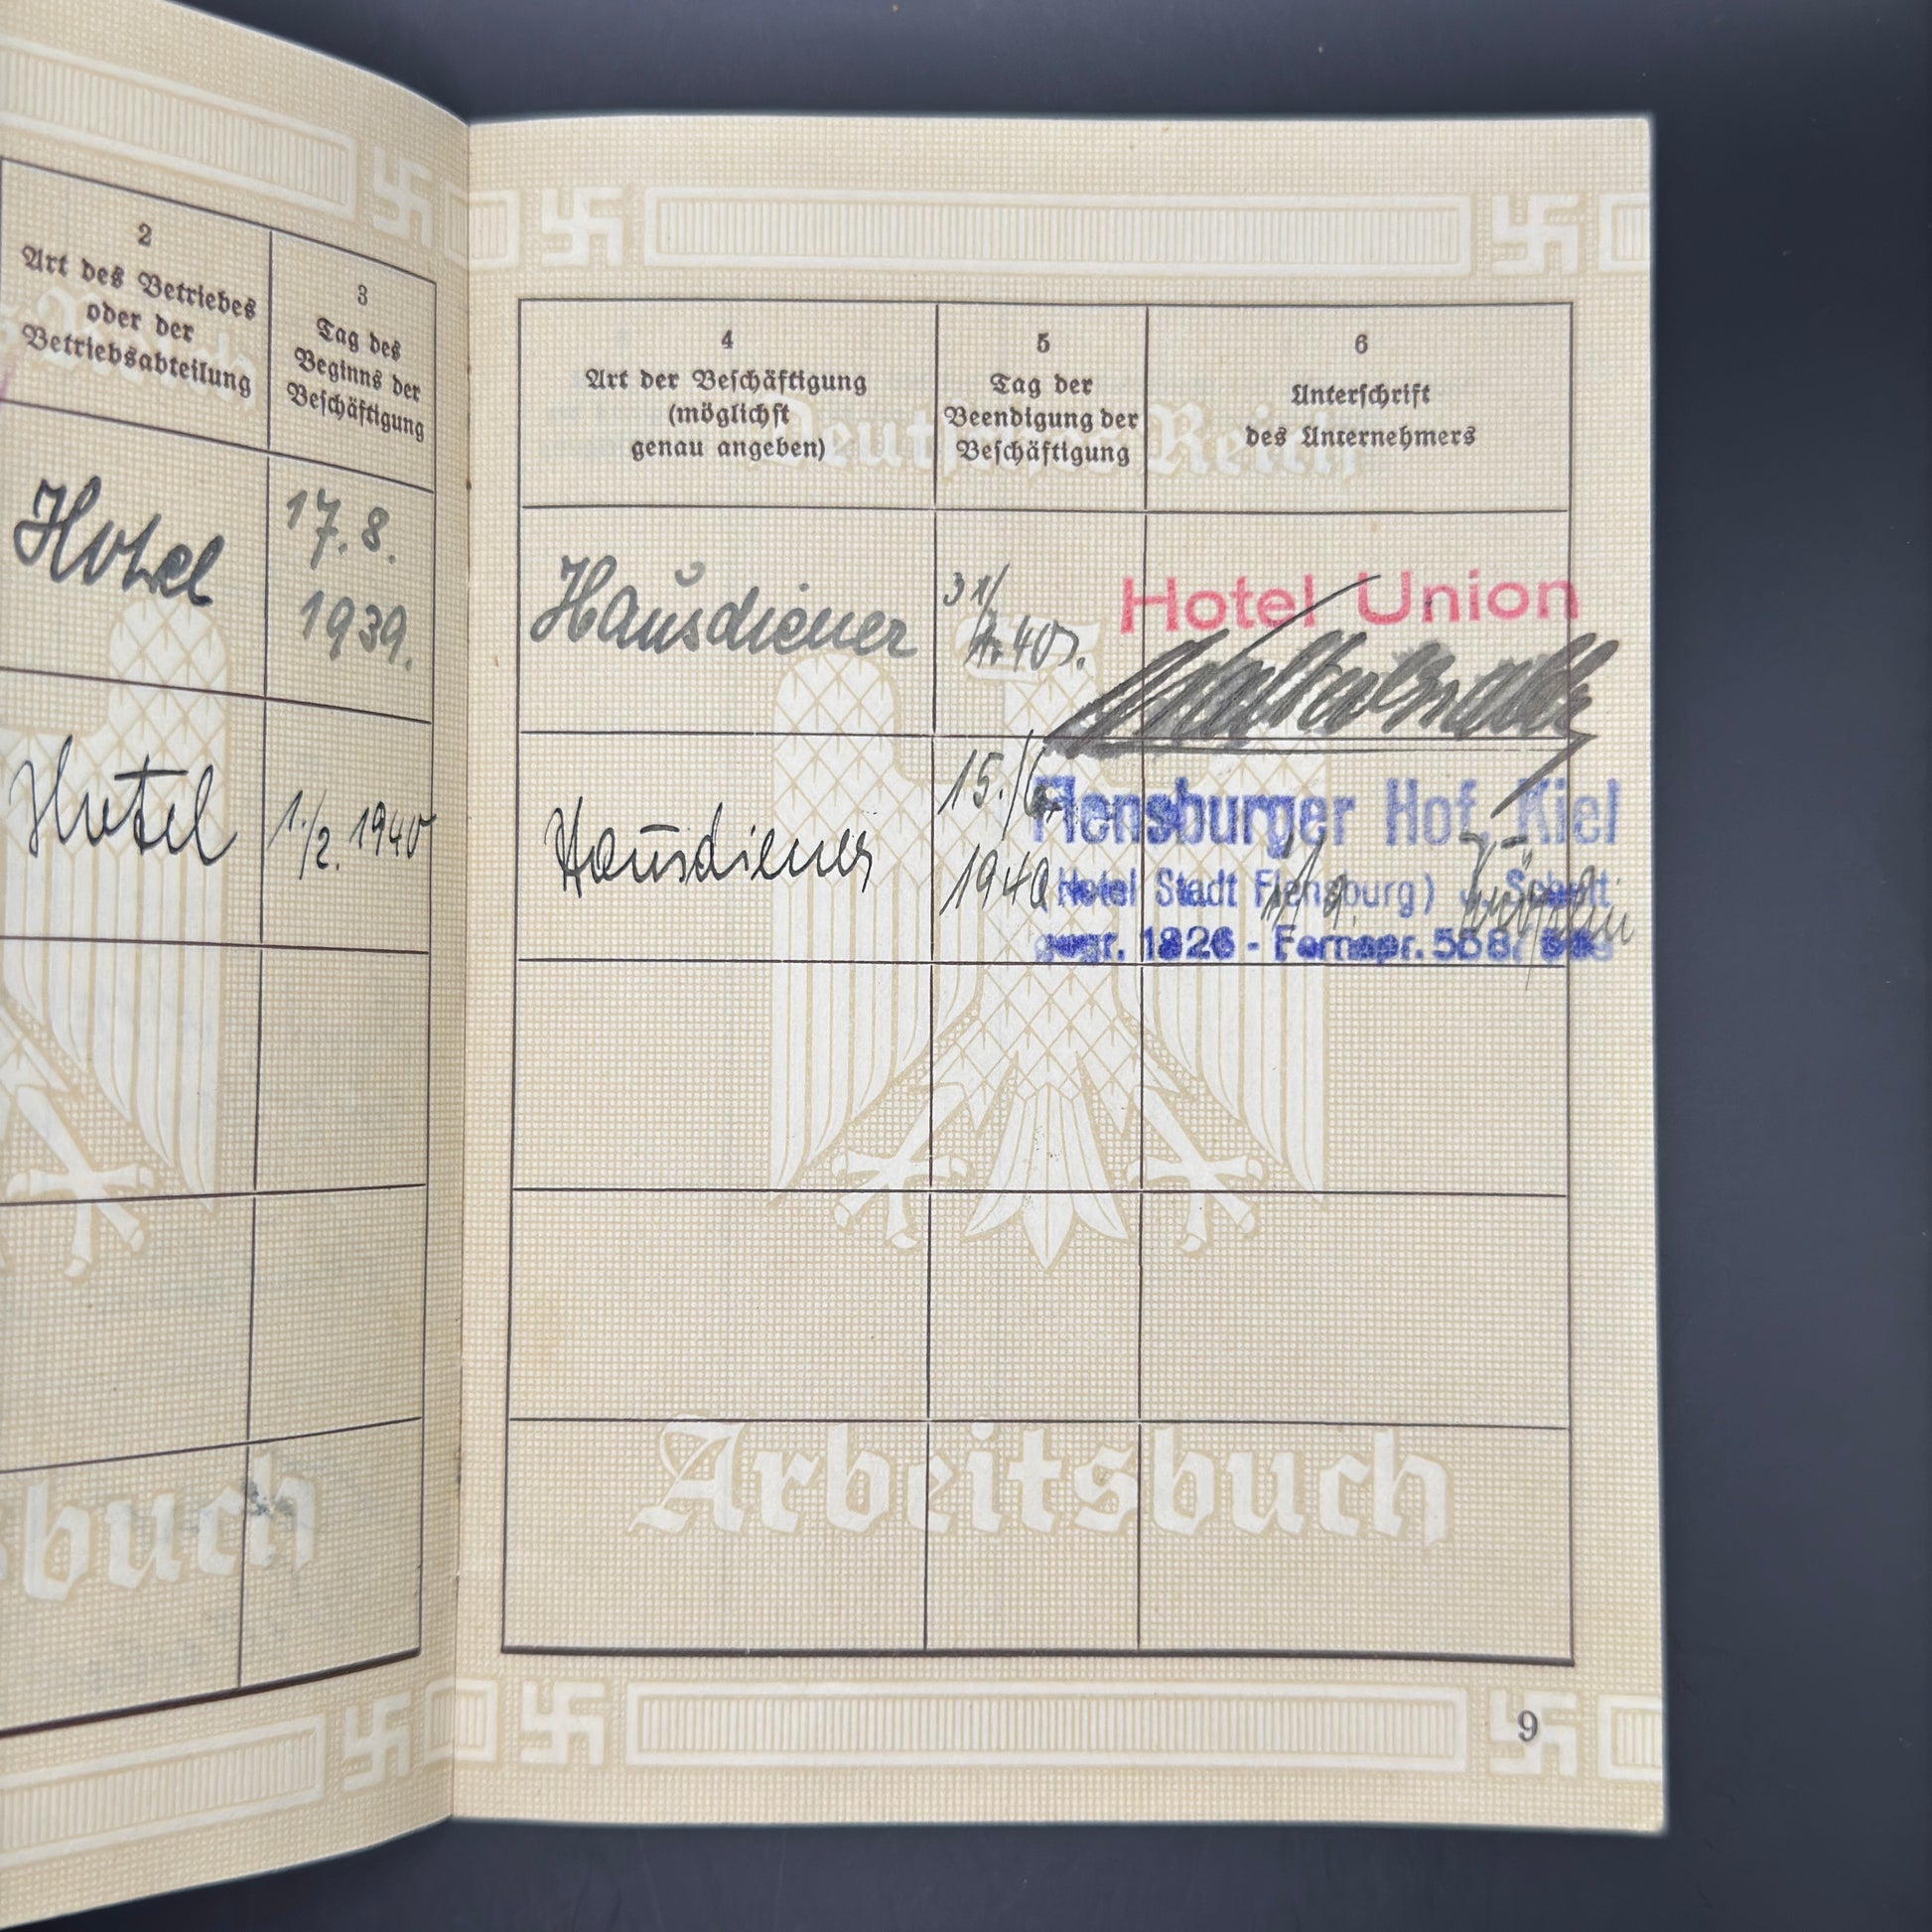 2
Art des Betriebes
oder der
Betriebsabteilung
3
Tag des
Beginns der
Beschäftigung
Hotel
17. 8.
1939.
Hotel
1./2. 1940
sbuch
4
Art der Beschäftigung
(möglichst
genau angeben)
5
Tag der
Beendigung der
Beschäftigung
6
Unterschrift
des Unternehmers
Deutsches Reich
Hausdiener
31/
40
Hotel Union
Hausdiener
15./6.
1940
Flensburger Hof, Kiel
(Hotel Stadt Flensburg) J. Schütt
gegr. 1826 - Fernspr. 558/
Arbeitsbuch
9